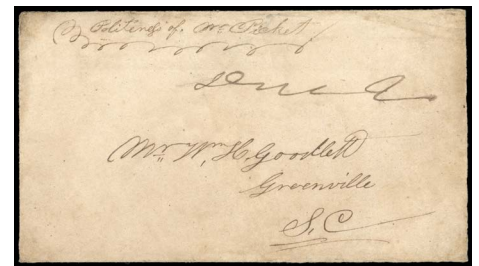 Politeness of. Mr Picket
Due
Mr. Wm. H. Goodlett
Greenville
S. C